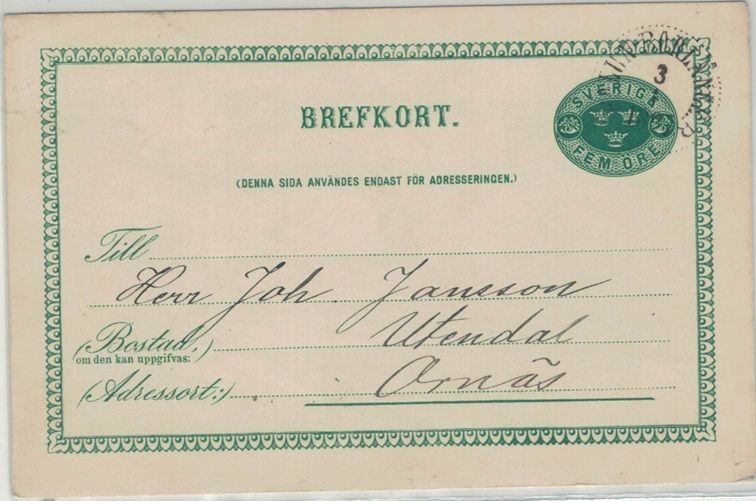 BREFKORT.
SVERIGE
FEM ÖRE
3
(DENNA SIDA ANVÄNDES ENDAST FÖR ADRESSERINGEN.)
Till
Herr Joh. Jansson
(Bostad,) Utendal
om den kan uppgifvas:
(Adressort:) Ornäs